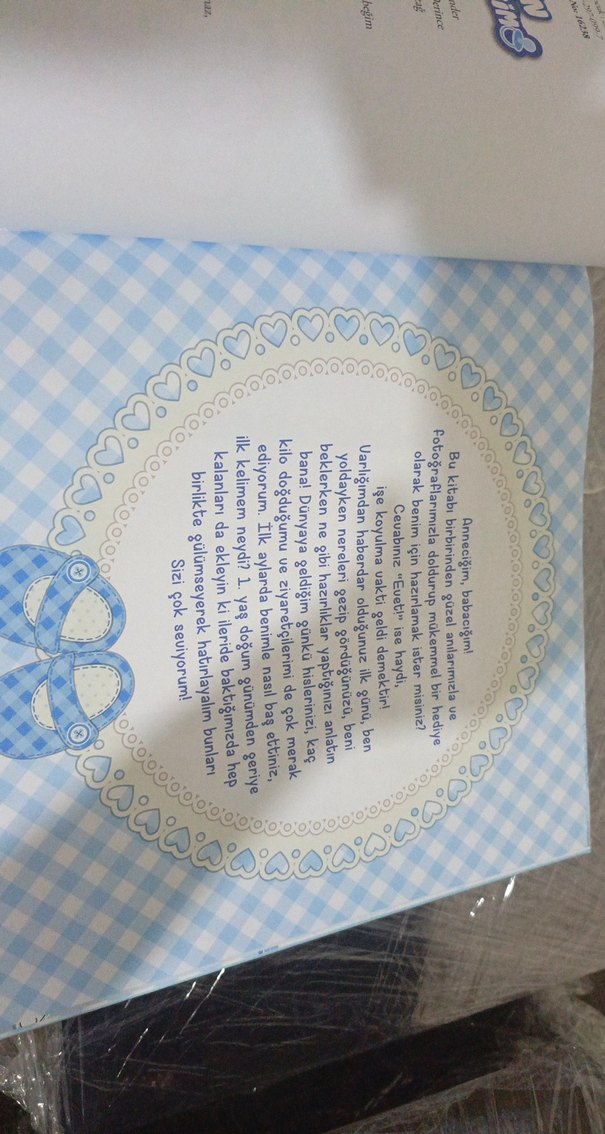 No: 16238
Derince
beğim
Anneciğim, babacığım!
Bu kitabı birbirinden güzel anılarımızla ve
fotoğraflarımızla doldurup mükemmel bir hediye
olarak benim için hazırlamak ister misiniz?
Cevabınız "Evet!" ise haydi,
işe koyulma vakti geldi demektir!
Varlığımdan haberdar olduğunuz ilk günü, ben
yoldayken nereleri gezip gördüğünüzü, beni
beklerken ne gibi hazırlıklar yaptığınızı anlatın
bana! Dünyaya geldiğim günkü hislerinizi, kaç
kilo doğduğumu ve ziyaretçilerimi de çok merak
ediyorum. İlk aylarda benimle nasıl baş ettiniz,
ilk kelimem neydi? 1. yaş doğum günümden geriye
kalanları da ekleyin ki ileride baktığımızda hep
birlikte gülümseyerek hatırlayalım bunları
Sizi çok seviyorum!